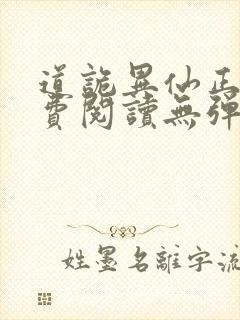 道詭異仙正
費閱讀無彈
姓墨名離字流